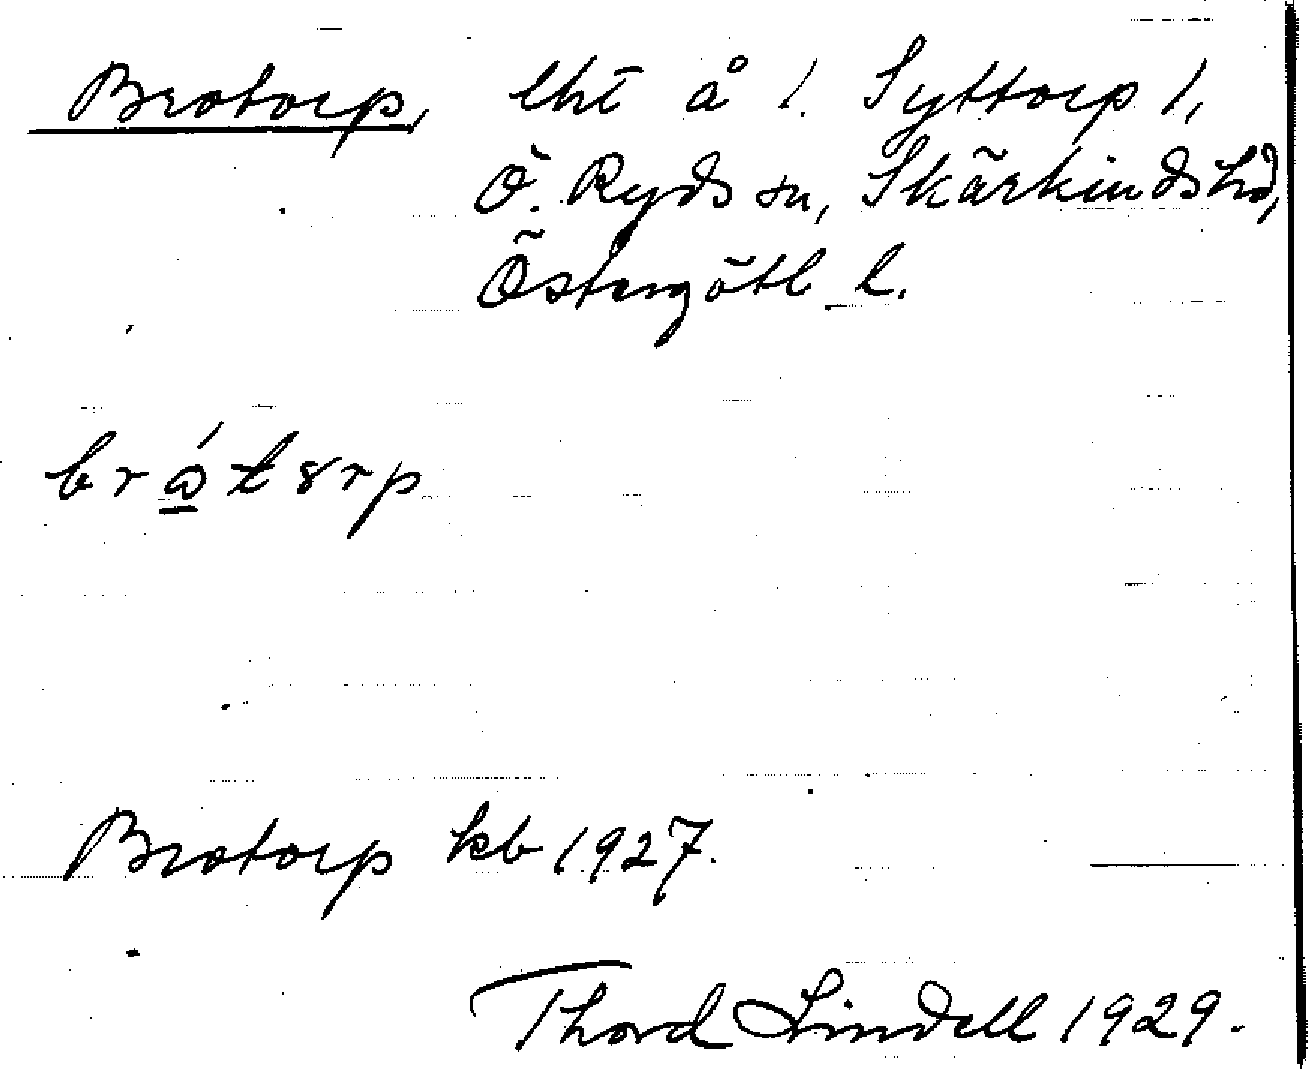 Brotorp, lht å 1. Syttorp 1,
Ö. Ryds sn, Skärkinds hd,
Östergötl. l.
Brotorp kb 1927.
Thord Lindell 1929.